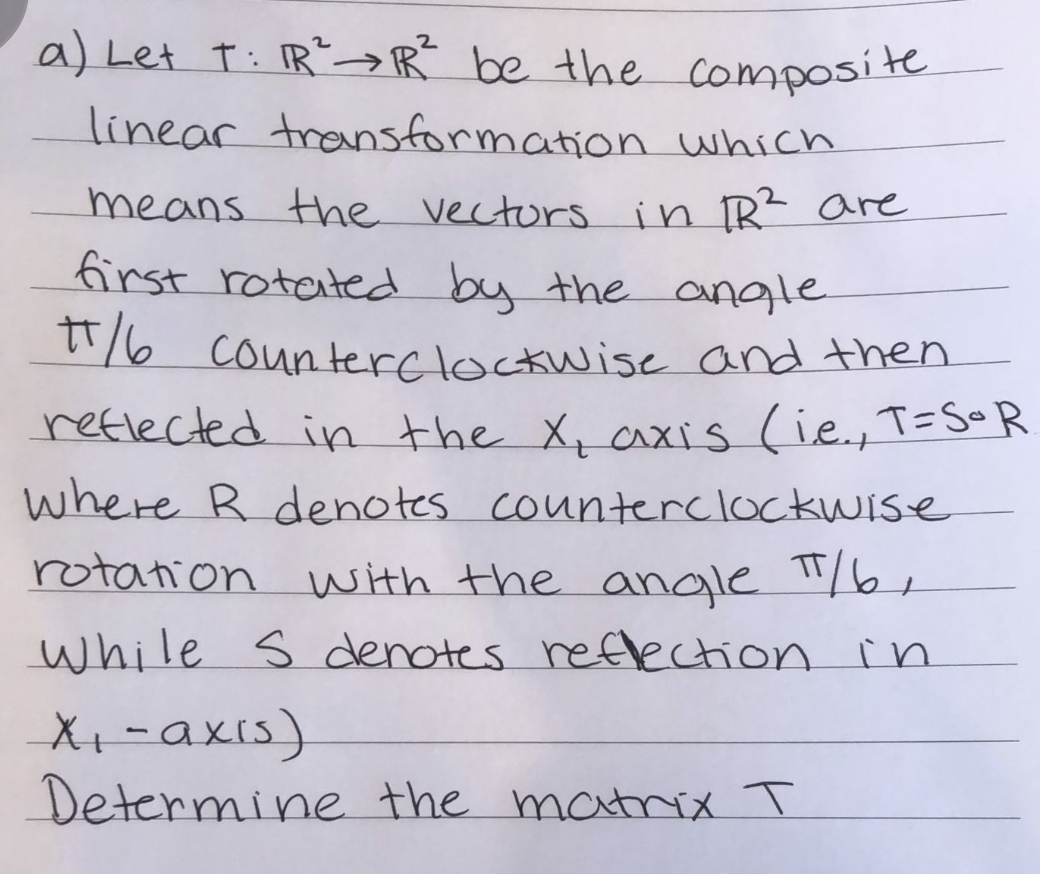 a) Let T: ℝ² → ℝ² be the composite
linear transformation which
means the vectors in ℝ² are
first rotated by the angle
π/6 counterclockwise and then
reflected in the x₁ axis (i.e., T=S∘R
where R denotes counterclockwise
rotation with the angle π/6,
while S denotes reflection in
x₁-axis)
Determine the matrix T